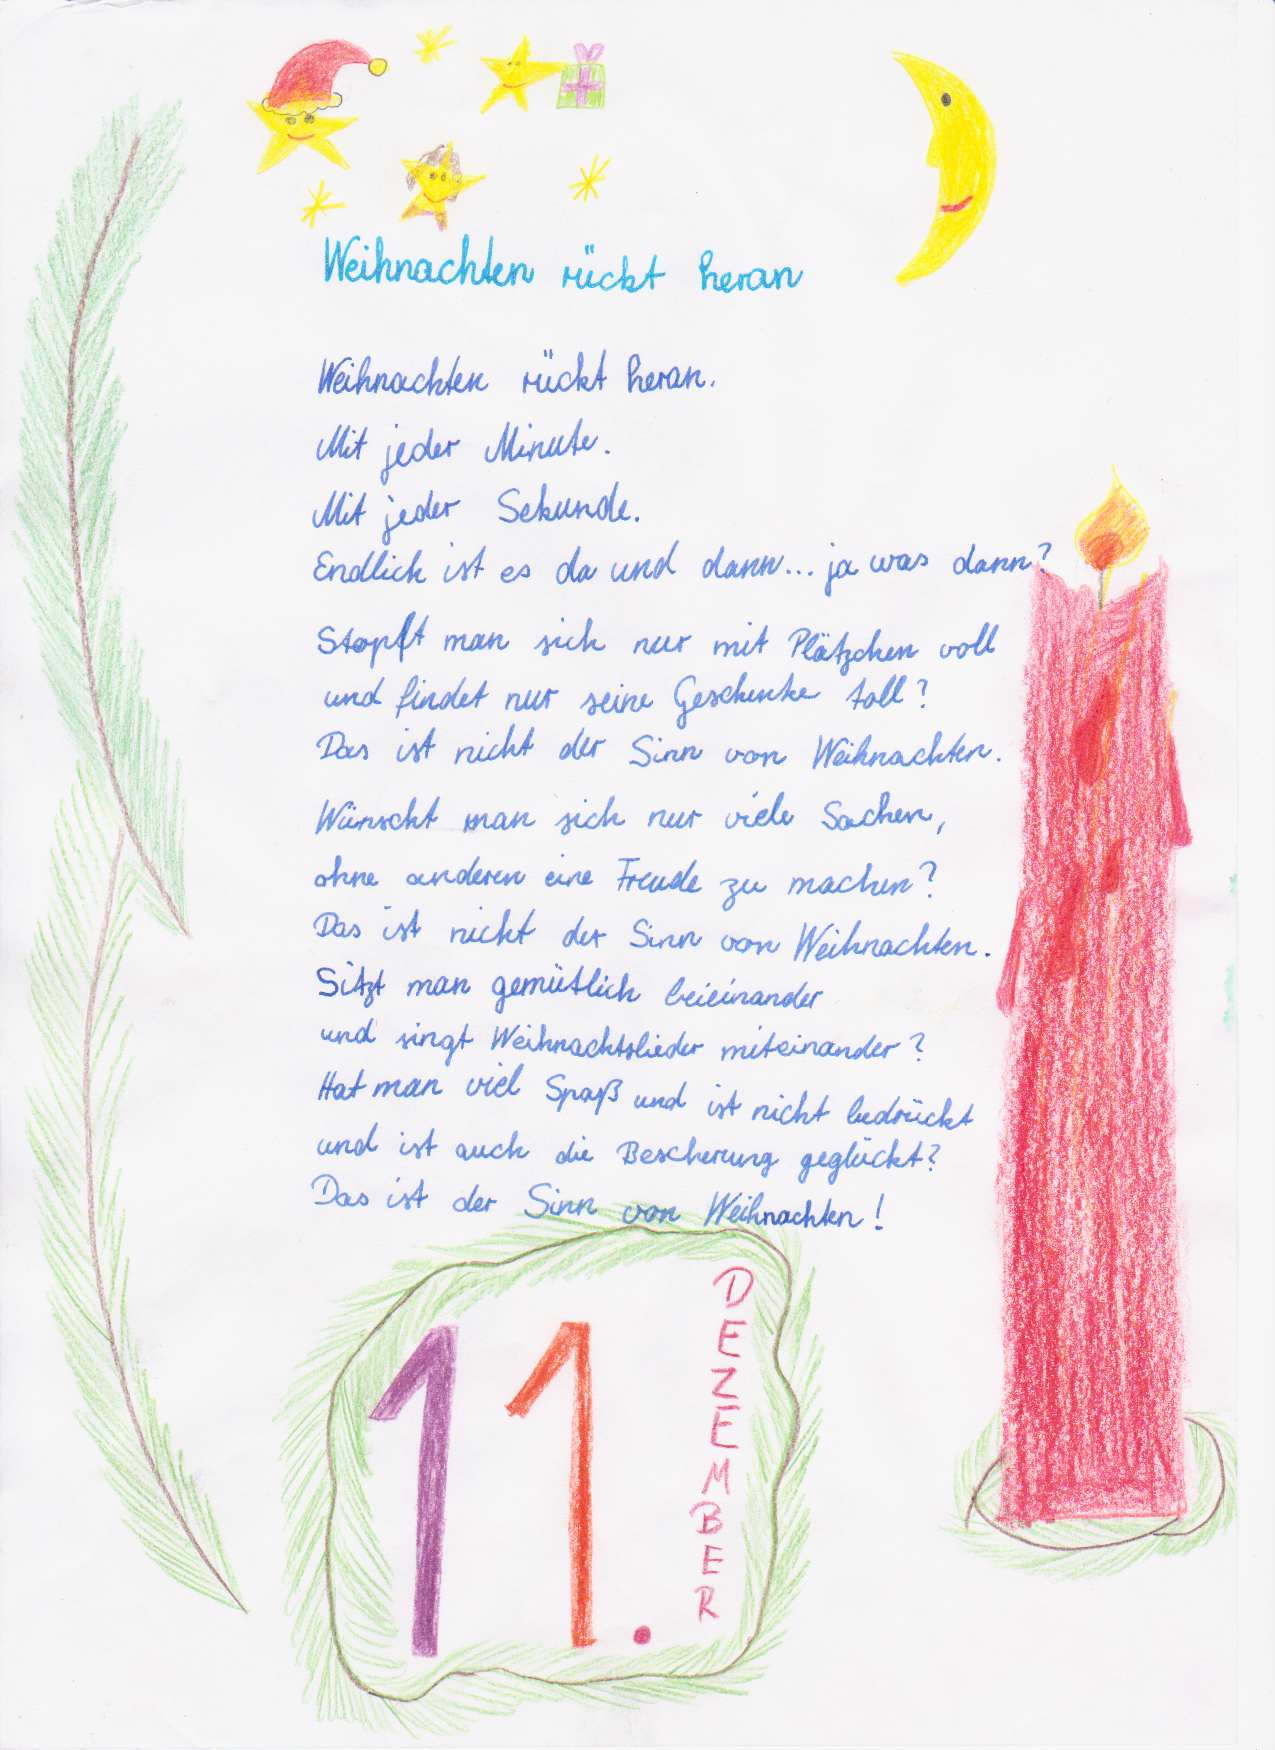 Weihnachten rückt heran
Weihnachten rückt heran.
Mit jeder Minute.
Mit jeder Sekunde.
Endlich ist es da und dann... ja was dann?
Stopft man sich nur mit Plätzchen voll
und findet nur seine Geschenke toll?
Das ist nicht der Sinn von Weihnachten.
Wünscht man sich nur viele Sachen,
ohne anderen eine Freude zu machen?
Das ist nicht der Sinn von Weihnachten.
Sitzt man gemütlich beieinander
und singt Weihnachtslieder miteinander?
Hat man viel Spaß und ist nicht bedrückt
und ist auch die Bescherung geglückt?
Das ist der Sinn von Weihnachten!
11.
DEZEMBER